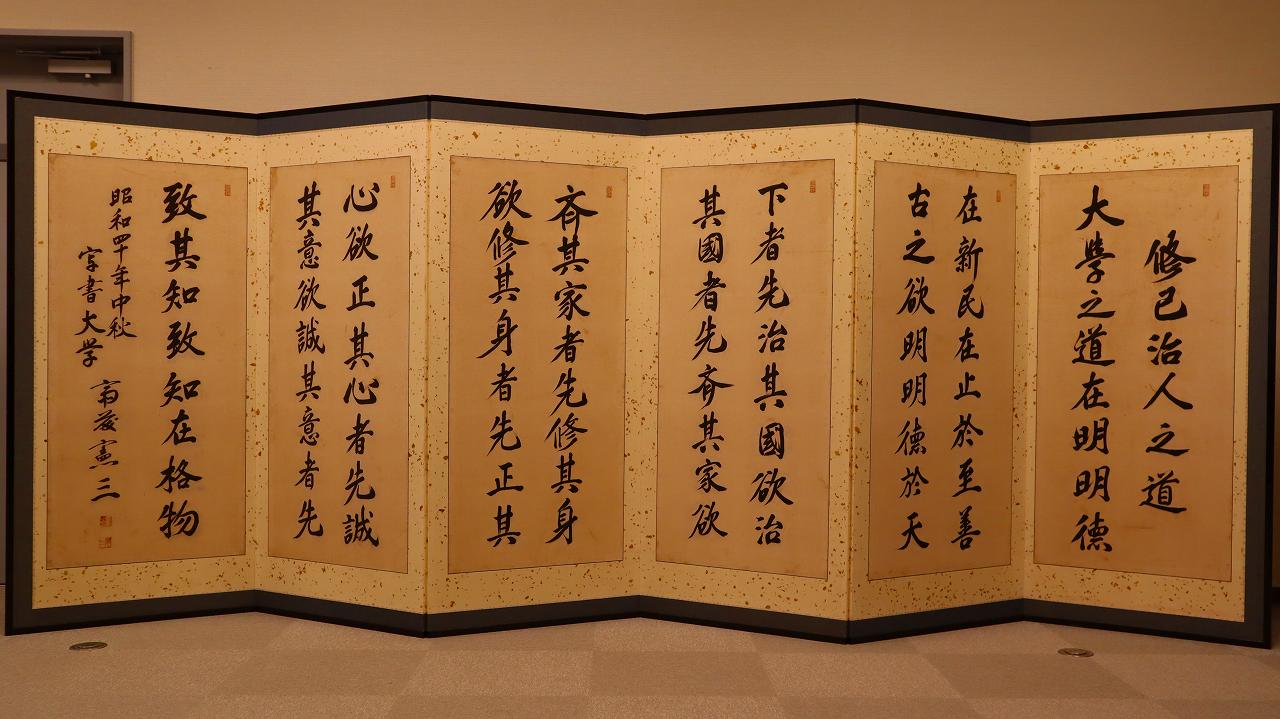 修己治人之道
大學之道在明明德
在新民在止於至善
古之欲明明德於天
下者先治其國欲治
其國者先斉其家欲
斉其家者先修其身
欲修其身者先正其
心欲正其心者先誠
其意欲誠其意者先
致其知致知在格物
昭和四十年中秋
書大学
斎藤憲三